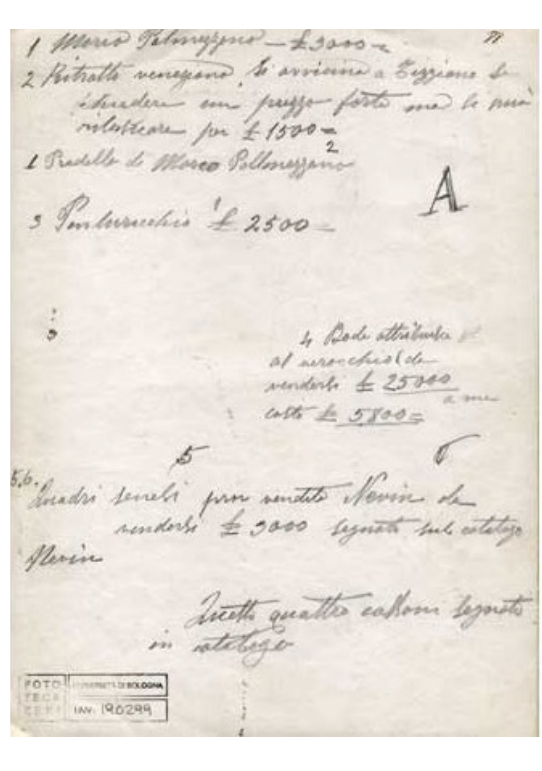 1 Marco Palmezzano — £ 3000 =
2 Ritratto veneziano, si avvicina a Tizziano
un prezzo forte ma lo
per £ 1500 =
2
1 Predella di Marco Pallmezzano
A
3 Penturicchio £ 2500 =
3
4 Bode attribuito
al verocchio da
vendersi £ 25000
a me
costo £ 5800 =
5 6
5.6.
Quadri senesi prov vendita Nevin da
vendersi £ 3000 segnati sul catalogo
Nevin
quattro cassoni segnati
in catalogo
FOTO
TECA
ZERI
UNIVERSITÀ DI BOLOGNA
INV. 190299